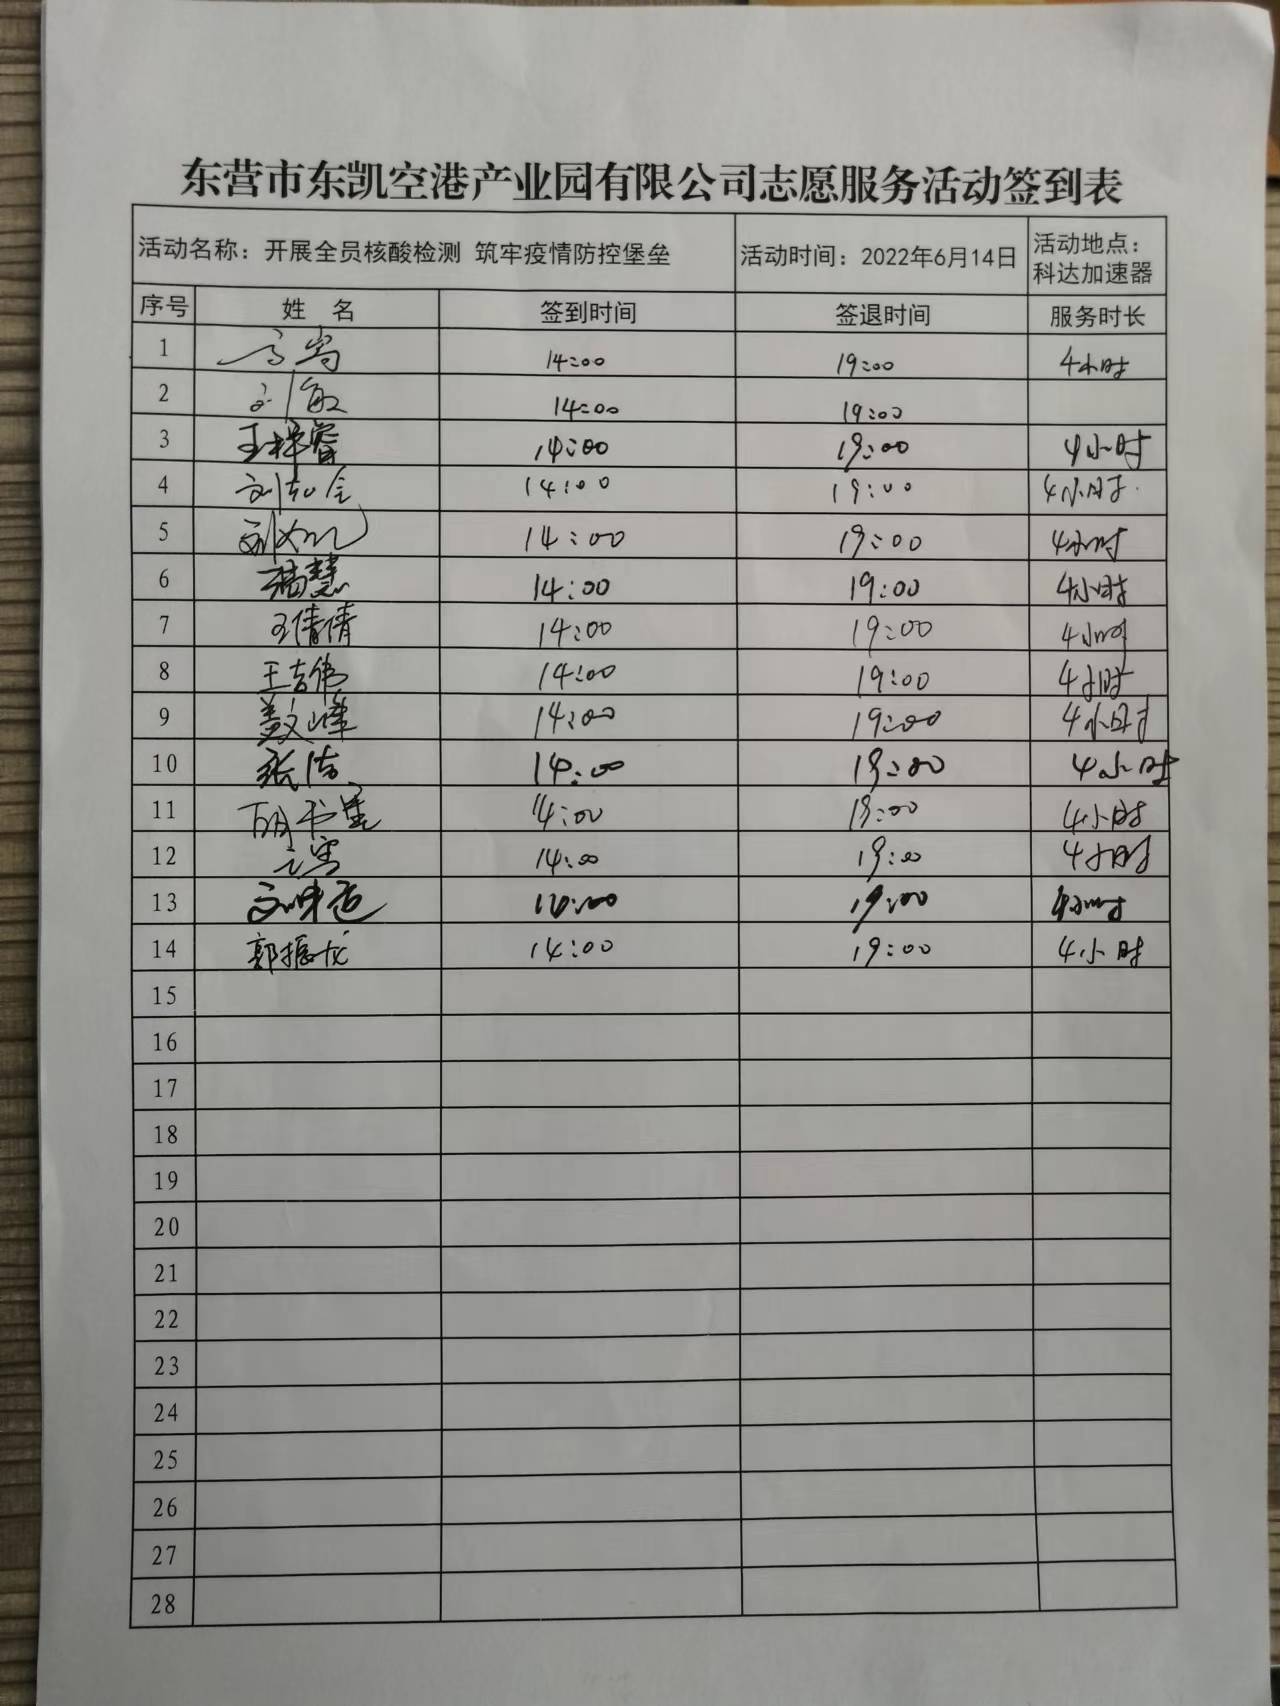 东营市东凯空港产业园有限公司志愿服务活动签到表
活动名称：开展全员核酸检测 筑牢疫情防控堡垒 活动时间：2022年6月14日 活动地点：科达加速器
序号 姓 名 签到时间 签退时间 服务时长
1 14:00 19:00 4小时
2 刘敏 14:00 19:00
3 14:00 19:00 4小时
4 14:00 19:00 4小时
5 14:00 19:00 4小时
6 杨慧 14:00 19:00 4小时
7 王倩倩 14:00 19:00 4小时
8 王吉伟 14:00 19:00 4小时
9 14:00 19:00 4小时
10 张洁 14:00 19:00 4小时
11 14:00 19:00 4小时
12 14:00 19:00 4小时
13 19:00 4小时
14 郭振龙 14:00 19:00 4小时
15
16
17
18
19
20
21
22
23
24
25
26
27
28